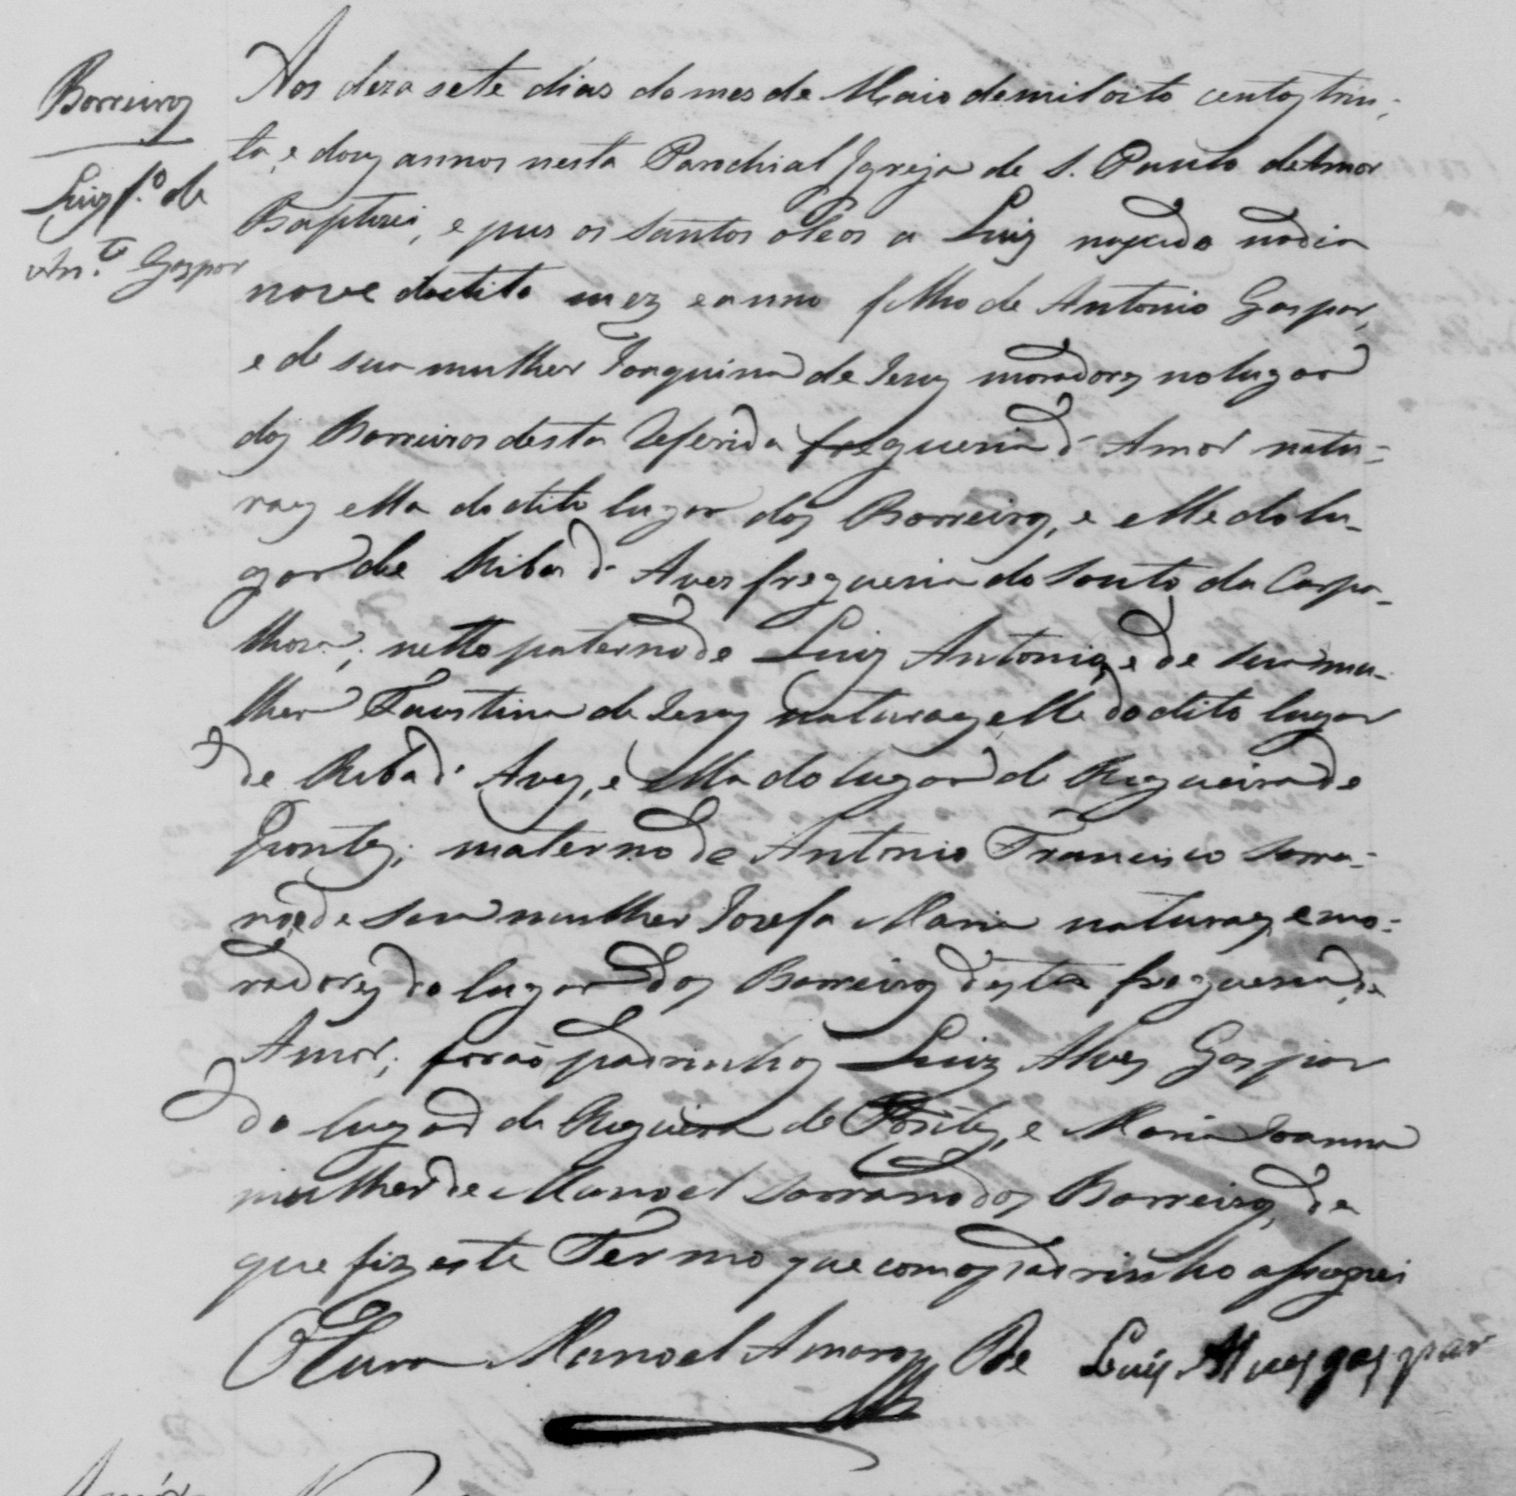 Barreiros
Luiz f.º de
Ant.º Gaspar
Aos deza sete dias do mes de Maio de mil oito centos trin-
ta, e dous annos nesta Parochial Igreja de S. Paulo de Amor
Baptizei, e pus os santos oleos a Luiz nascido no dia
nove do dito mez e anno filho de Antonio Gaspar,
e de sua mulher Joaquina de Jesus moradores no lugar
dos Barreiros desta referida freguesia d' Amor natu-
raes ella do dito lugar dos Barreiros, e elle do lu-
gar de Riba d' Aves freguesia do Souto da Carpa-
lhosa; netto paterno de Luiz Antonio, e de sua mu-
lher Faustina de Jesus naturaes elle do dito lugar
de Riba d' Aves, e ella do lugar de Regueira de
Pontes; materno de Antonio Francisco Sarra-
no, e de sua mulher Josefa Maria naturaes, e mo-
radores do lugar dos Barreiros desta freguesia de
Amor; forão padrinhos Luiz Alves Gaspar
do lugar de Regueira de Pontes, e Maria Joanna
mulher de Manoel Sarrano dos Barreiros, de
que fiz este Termo que com o padrinho assignei
O Cura Manoel Amaro De Luis Alves gaspar